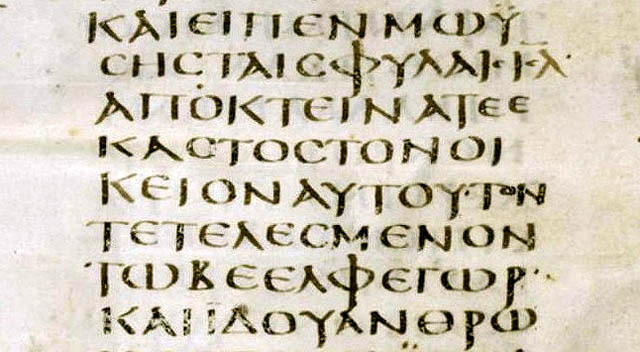 ΚΑΙΕΙΠΕΝΜΩΥ
ϹΗϹΤΑΙϹΦΥΛΑΙ
ΑΠΟΚΤΕΙΝΑΤΕΕ
ΚΑϹΤΟϹΤΟΝΟΙ
ΚΕΙΟΝΑΥΤΟΥ·ΤΟΝ
ΤΕΤΕΛΕϹΜΕΝΟΝ
ΤΩΒΕΕΛΦΕΓΩΡ·
ΚΑΙΙΔΟΥΑΝΘΡΩ